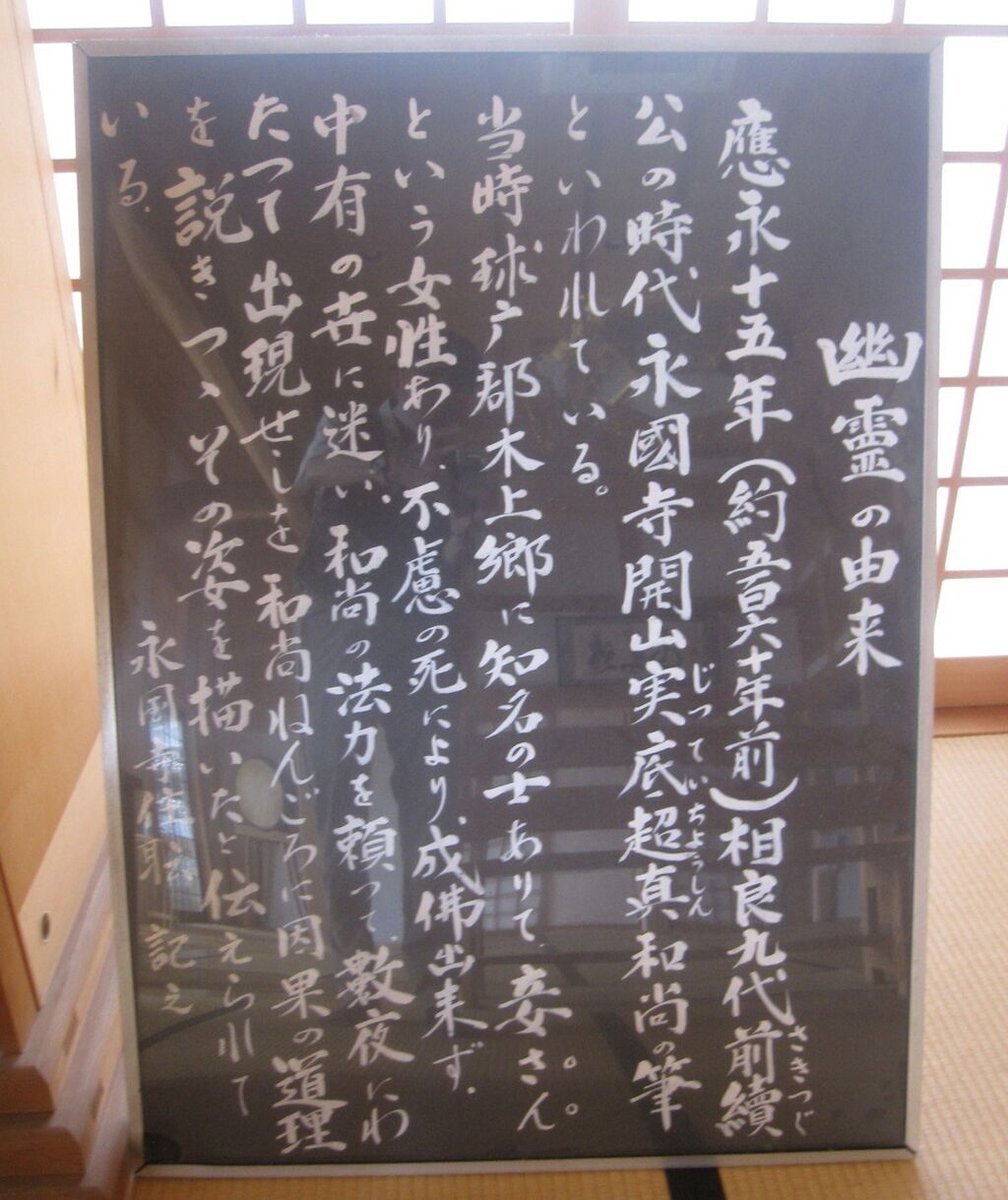 幽霊の由来
應永十五年(約五百六十年前)相良九代前續
さきつぐ
公の時代永國寺開山実底超真和尚の筆
じつていちようしん
といわれている。
当時球广郡木上郷に知名の士ありて、妾さん
という女性あり、不慮の死により、成佛出来ず、
中有の世に迷い、和尚の法力を頼って、数夜にわ
たって出現せしを和尚ねんごろに因果の道理
を説きつゝその姿を描いたと伝えられて
いる。
永国寺住職 記之